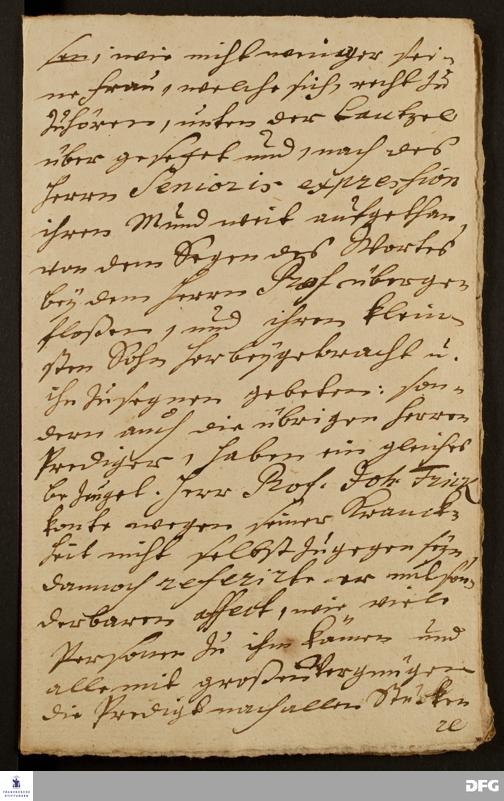 sen, wie nicht weniger sei-
ne Frau, welche sich, recht zu
zuhören, unten der Cantzel
über gesetzet und, nach des
Herrn Senioris expression
ihren Mund weit aufgethan,
von dem Segen des Wortes
bey dem Herrn Prof übergen
floßen, und ihren klein-
sten Sohn herbeygebracht u.
ihn zusegnen gebeten: son-
dern auch die übrigen Herren
Prediger, haben ein gleiches
bezeuget. Herr Prof. Joh. Frick
konte wegen seiner Kranck-
heit nicht selbst zugegen seyn,
dannoch referirte er mit son-
derbaren affect, wie viele
Personen zu ihm kämen und
alle mit großen Vergnügen
die Predigt nach allen Stücken
re
FRANCKESCHE
STIFTUNGEN
DFG